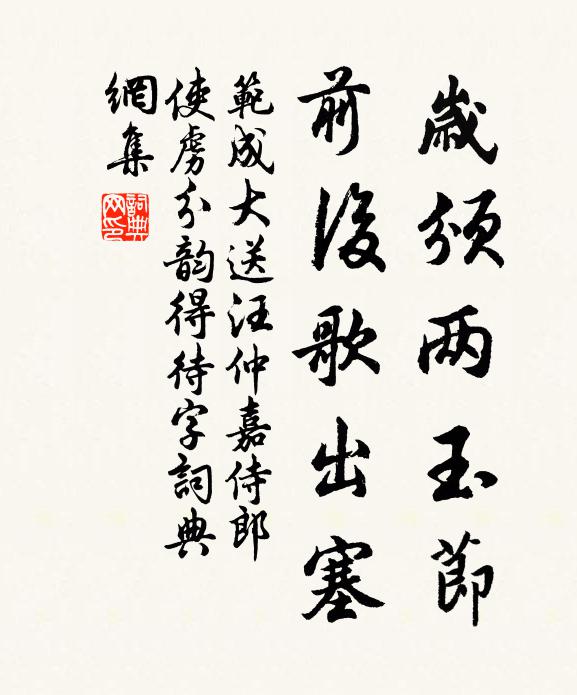 歲頒两玉節
前後歌出塞
範成大送汪仲嘉侍郎
使虜分韵得待字詞典
網集
詞典网印